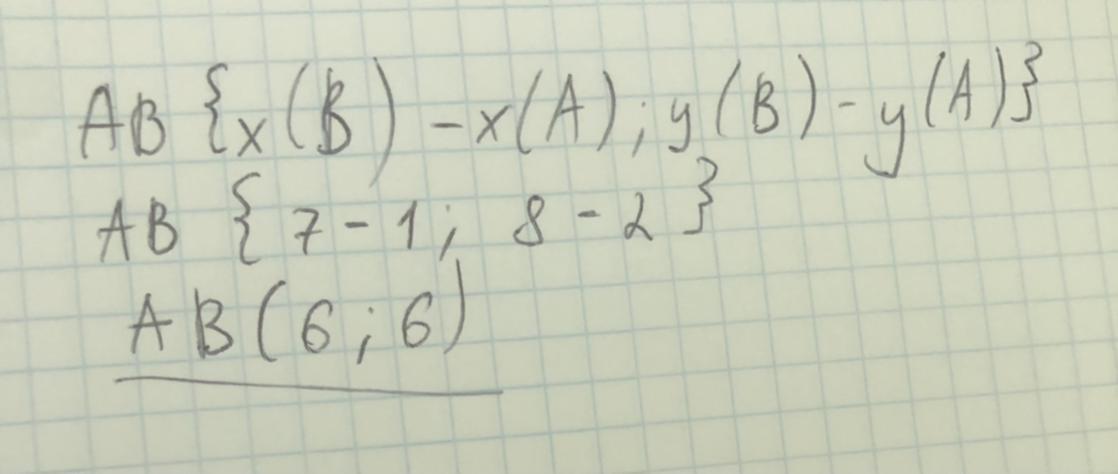 AB {x(B) - x(A); y(B) - y(A)}
AB { 7 - 1; 8 - 2 }
AB (6; 6)